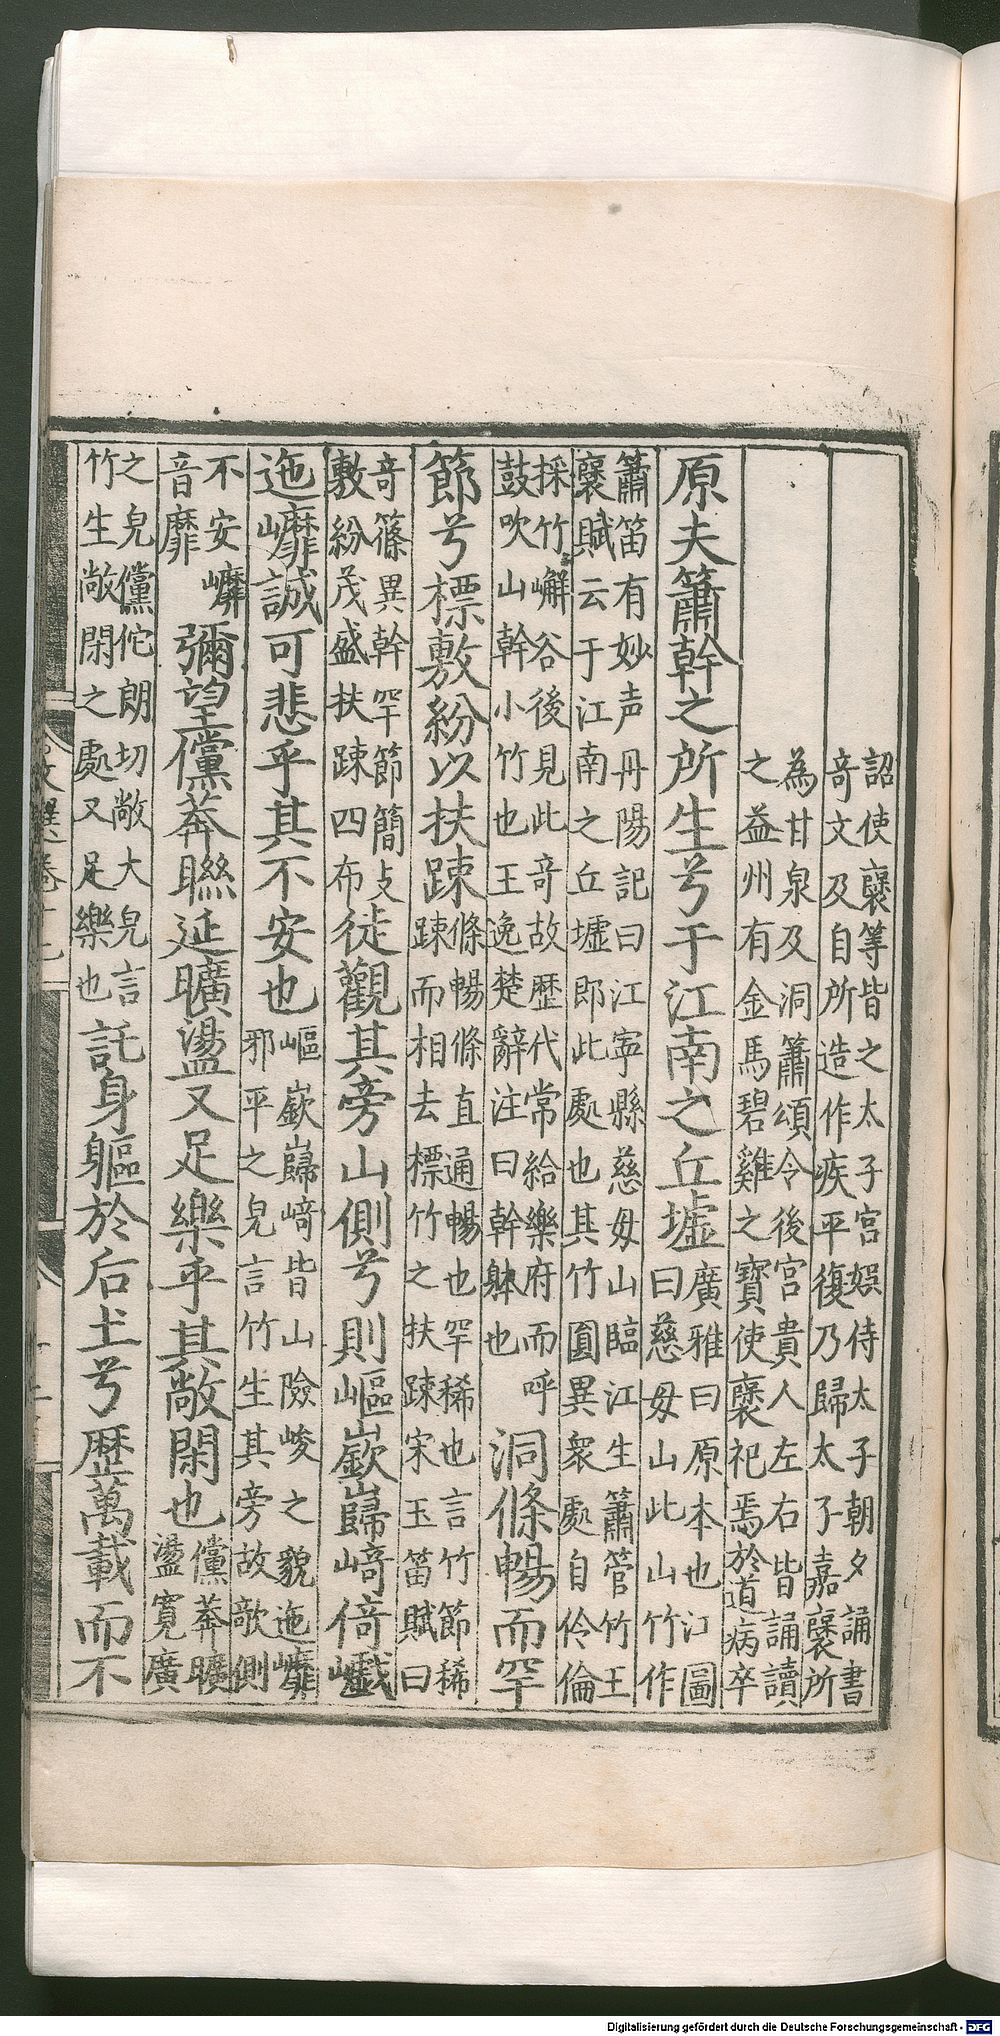 詔使襃等皆之太子宮娛侍太子朝夕誦書
竒文及自所造作疾平復乃歸太子嘉襃所
為甘泉及洞簫頌令後宮貴人左右皆誦讀
之益州有金馬碧雞之寶使襃祀焉於道病卒
原夫簫幹之所生兮于江南之丘墟
廣雅曰原本也江圖
曰慈毋山此山竹作
簫笛有妙声丹陽記曰江寧縣慈毋山臨江生簫管竹王
襃賦云于江南之丘墟即此處也其竹圎異衆處自伶倫
採竹嶰谷後見此竒故歷代常給樂府而呼
鼓吹山幹小竹也王逸楚辭注曰幹躰也
洞條暢而罕
節兮標敷紛以扶踈
條暢條直通暢也罕稀也言竹節稀
踈而相去標竹之扶踈宋玉笛賦曰
竒篠異幹罕節簡支
敷紛茂盛扶踈四布
徒觀其旁山側兮則嶇嶔巋崎倚巇
迤㠧誠可悲乎其不安也
嶇嶔巋崎皆山險峻之貌迤㠧
邪平之皃言竹生其旁故歌側
不安㠧
音靡
彌望儻莽聮延曠盪又足樂乎其敞閑也
儻莽曠
盪寬廣
之皃儻佗朗切敞大皃言
竹生敞閑之處又足樂也
託身軀於后土兮歷萬載而不
文選卷十七
Digitalisierung gefördert durch die Deutsche Forschungsgemeinschaft - DFG